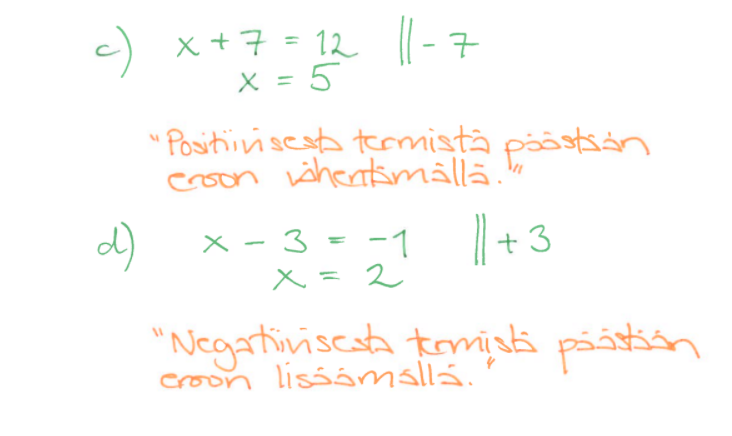 c) x + 7 = 12 || - 7
x = 5
"Positiivisesta termistä päästään
eroon vähentämällä."
d) x - 3 = -1 || + 3
x = 2
"Negatiivisesta termistä päästään
eroon lisäämällä."